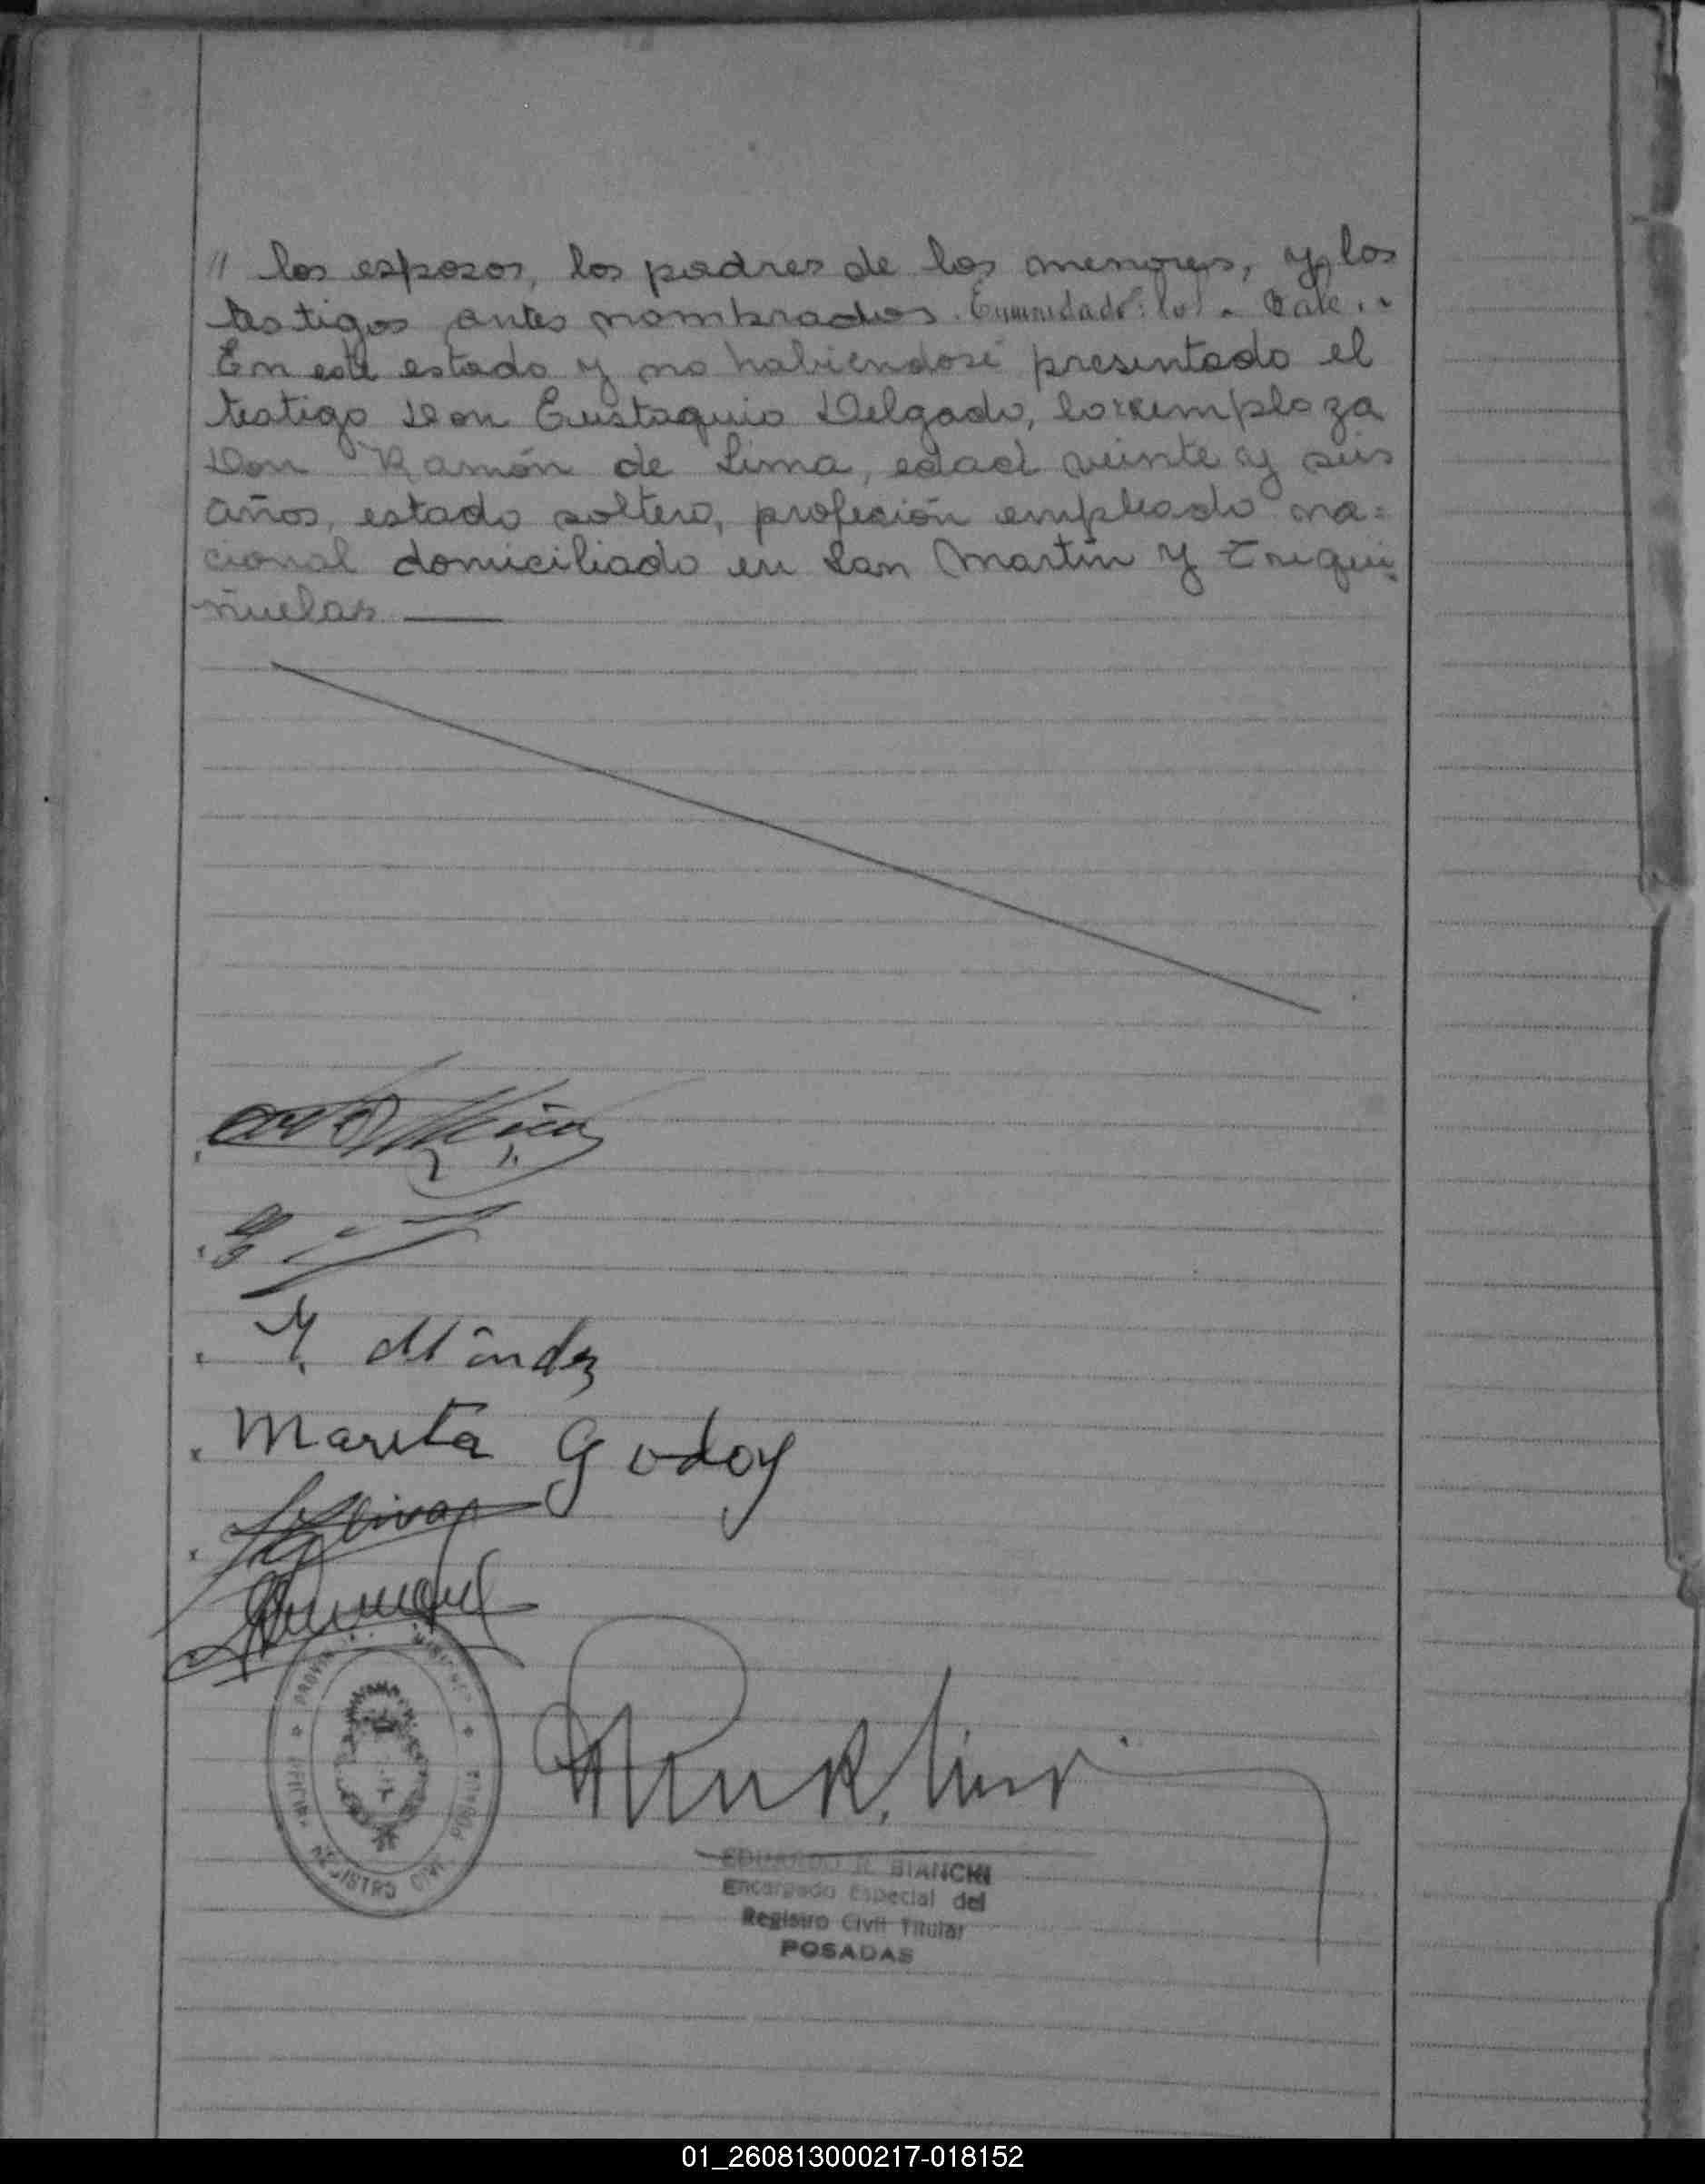 // los esposos, los padres de los menores, y los
testigos antes nombrados. Enmendado: los. Vale.-
En este estado y no habiendose presentado el
testigo Don Eustaquio Delgado, lo remplaza
Don Ramón de Lima, edad veinte y seis
años, estado soltero, profesión empleado na=
cional domiciliado en San Martín y Trequi
ñuelas
M. Méndez
Marita Godoy
PROVINCIA MISIONES
OFICINA REGISTRO CIVIL POSADAS
EDUARDO R. BIANCHI
Encargado Especial del
Registro Civil Titular
POSADAS
01_260813000217-018152